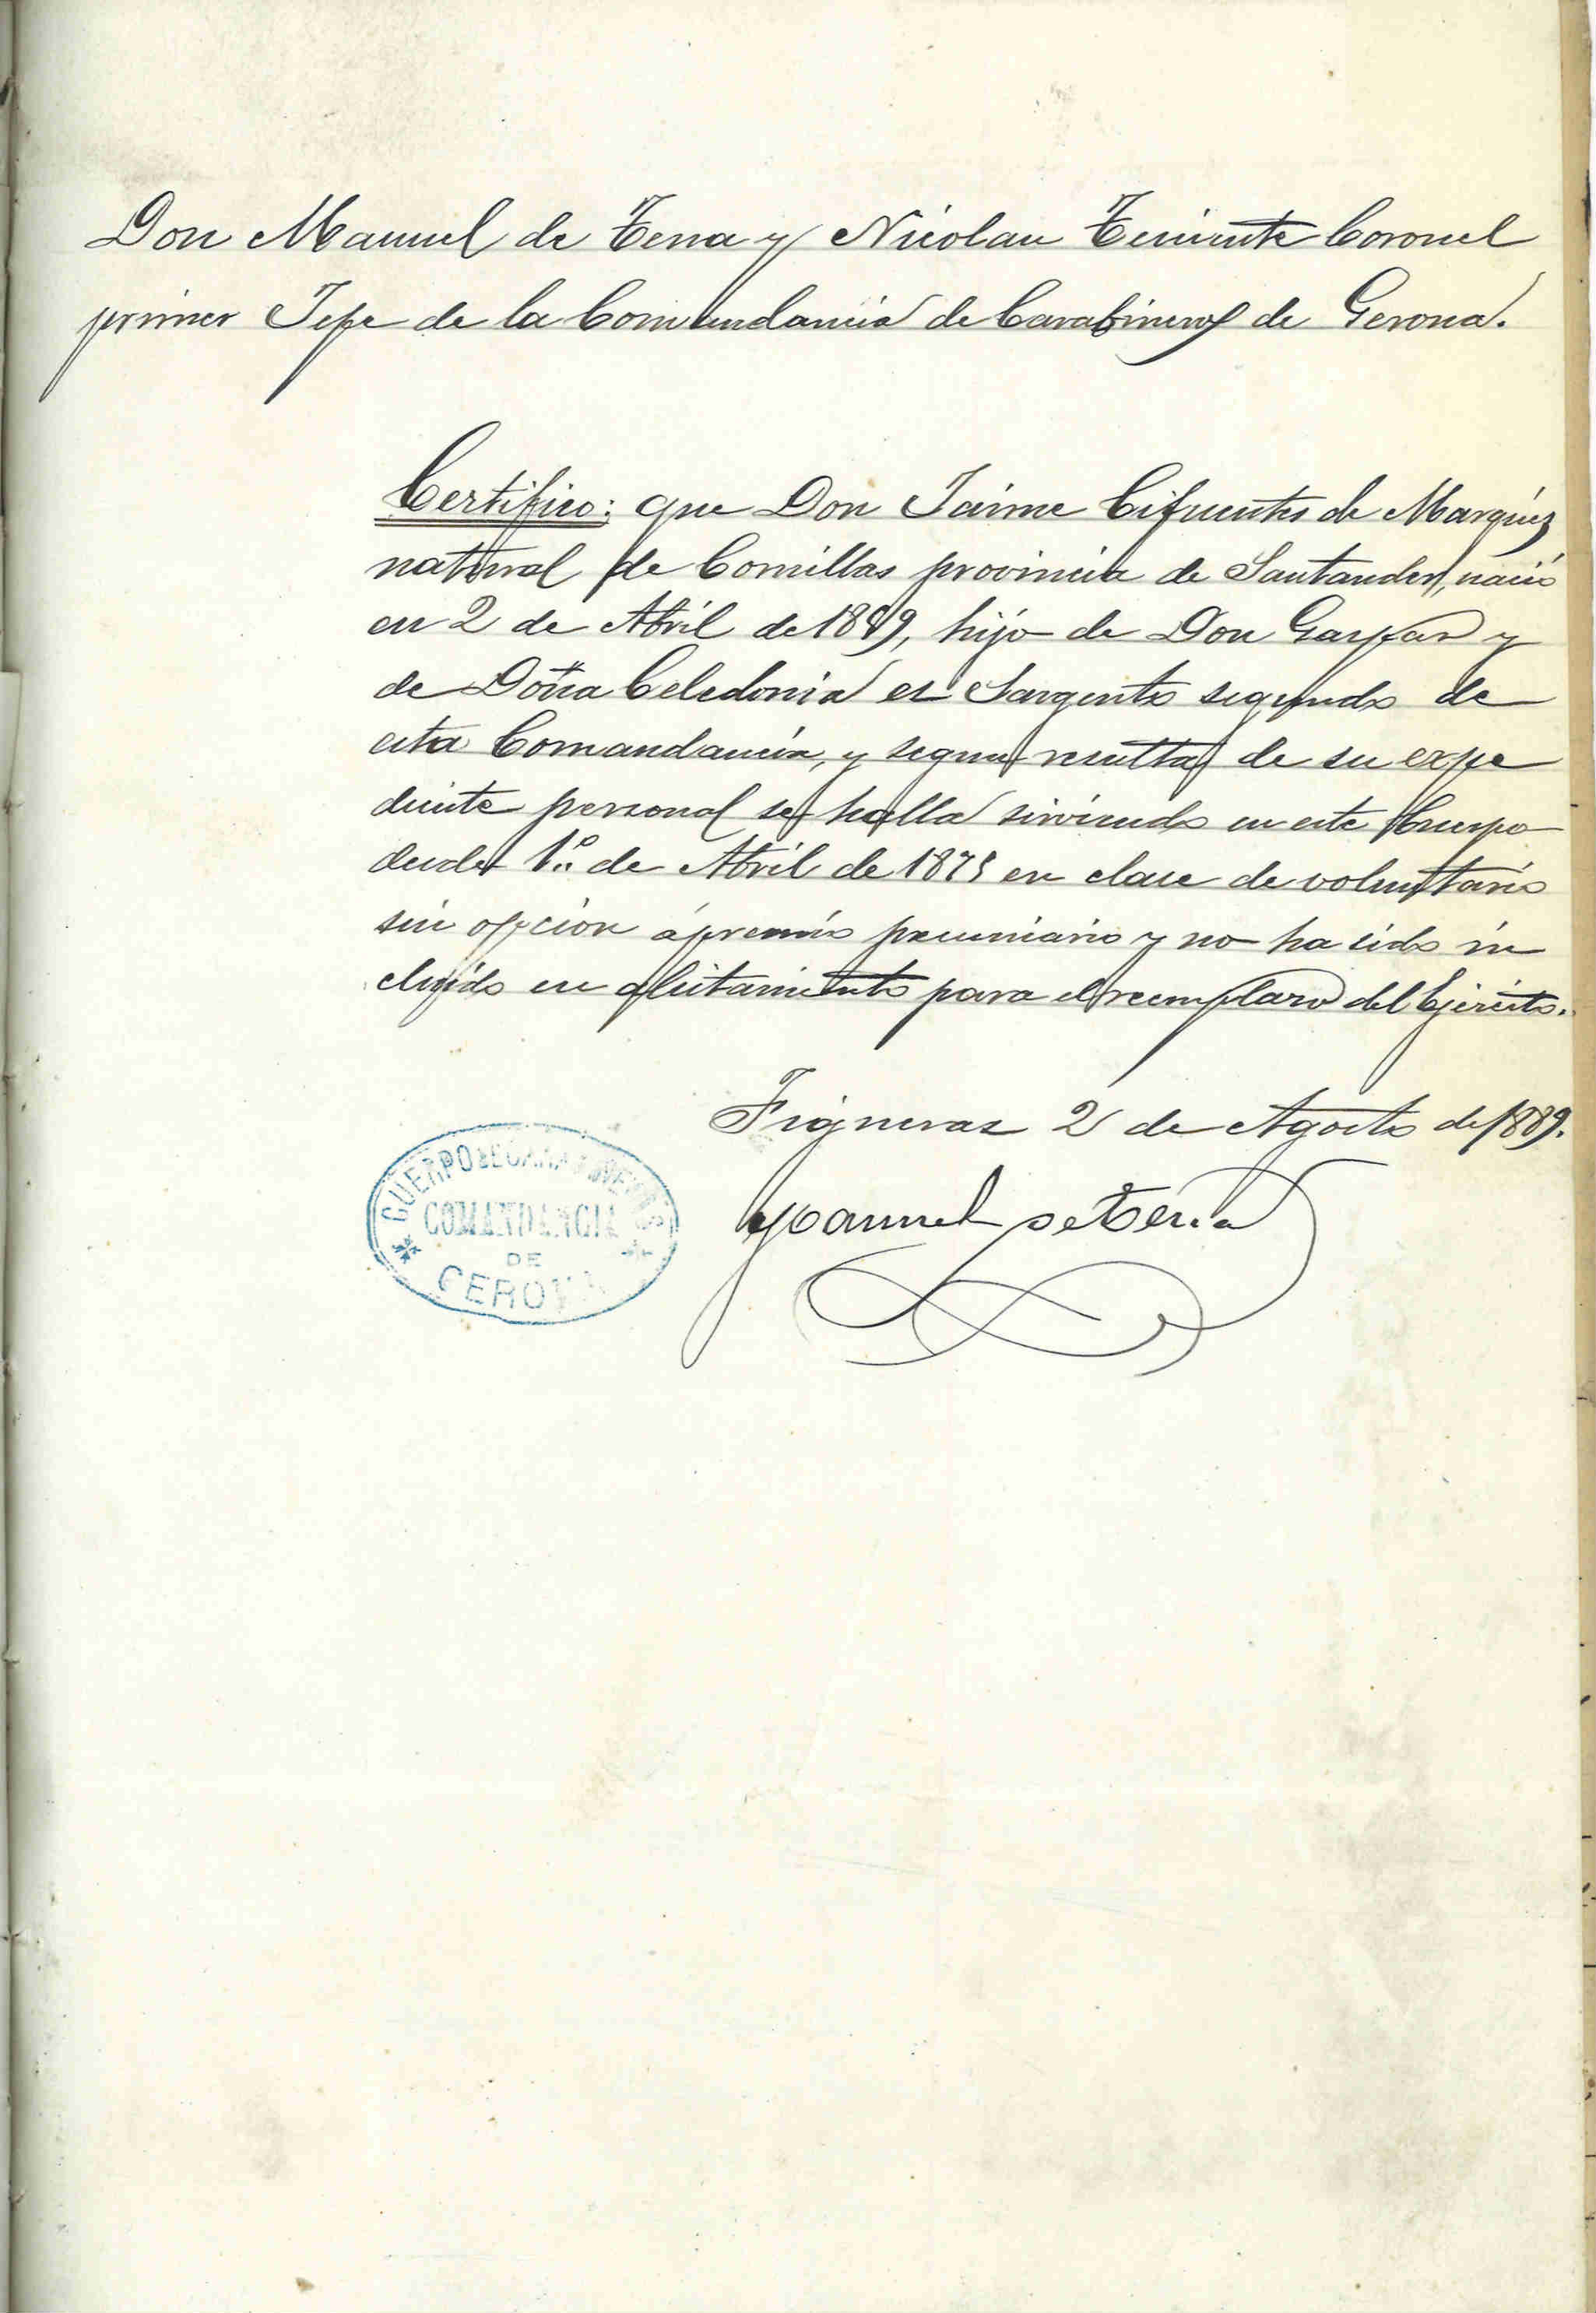 Don Manuel de Tena y Nicolau Teniente Coronel
primer Jefe de la Comandancia de Carabineros de Gerona.
Certifico: que Don Jaime Cifuentes de Marquez
natural de Comillas provincia de Santander, nació
en 2 de Abril de hijo de Don Gaspar y
de Doña Celedonia es Sargento segundo de
esta Comandancia, y segun resulta de su expe
diente personal se halla sirviendo en este Cuerpo
desde 1º de Abril de en clase de voluntario
sin opcion á premio pecuniario y no ha sido in
cluido en alistamiento para el reemplazo del Ejército.
Figueras 2 de Agosto de 1889.
Manuel de Tena
CUERPO DE CARABINEROS
COMANDANCIA
DE
GERONA